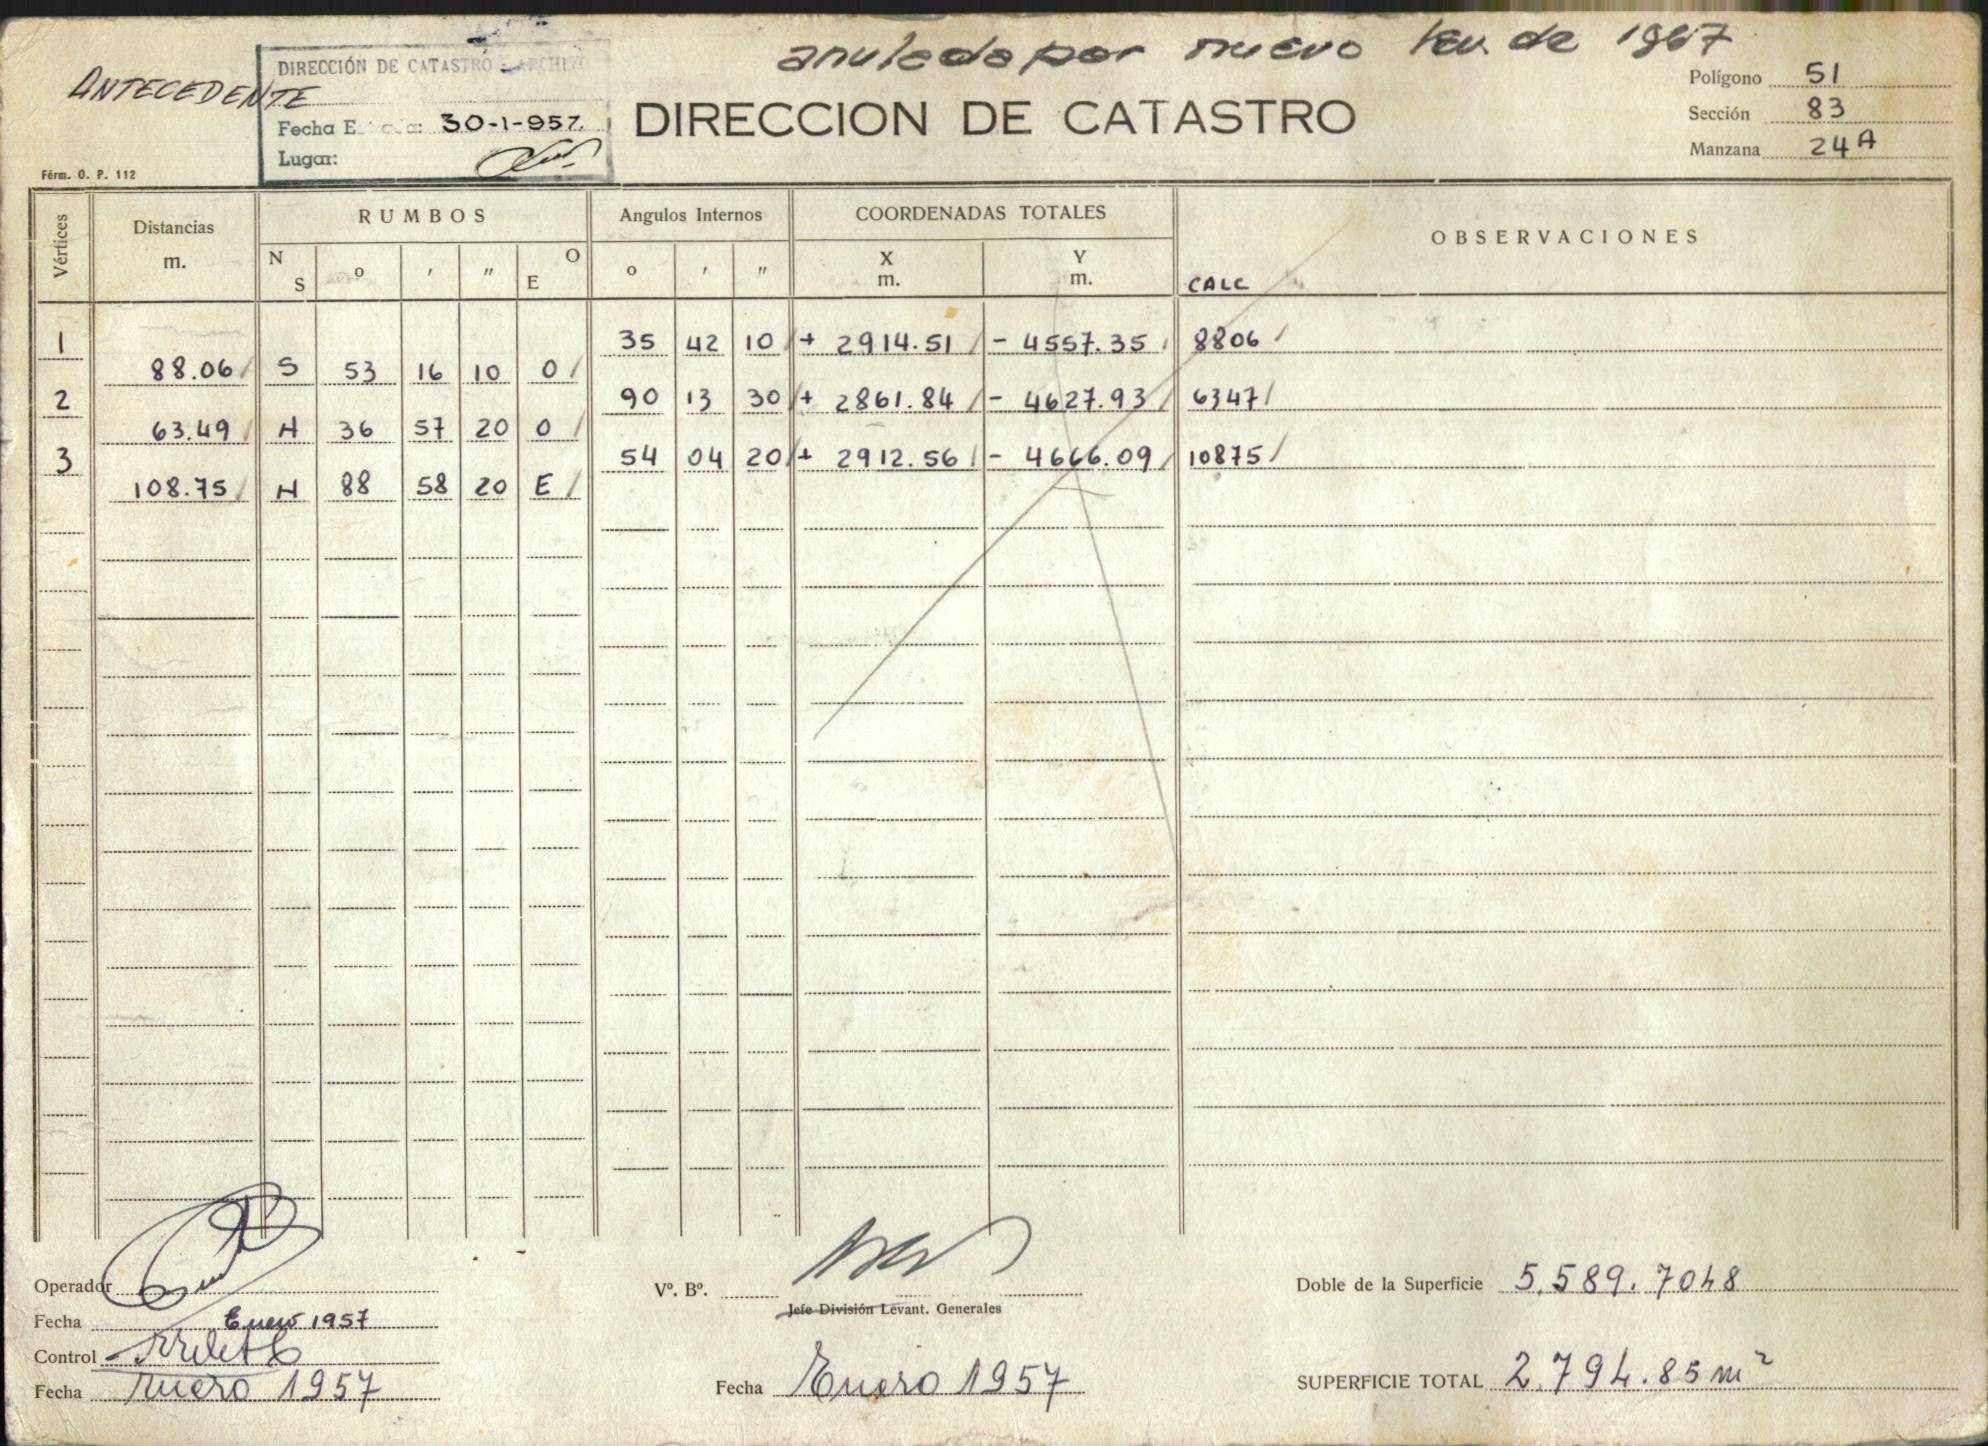 anulado por nuevo lev. de 1967
ANTECEDENTE
DIRECCIÓN DE CATASTRO - ARCHIVO
Fecha E 30-1-957.
Lugar:
DIRECCION DE CATASTRO
Polígono 51
Sección 83
Manzana 24 A
Férm. O. P. 112
Vértices
Distancias m.
RUMBOS
N S o ' " O E
Angulos Internos
o ' "
COORDENADAS TOTALES
X m. Y m.
OBSERVACIONES
CALC
1 35 42 10 + 2914.51 - 4557.35 8806
88.06 S 53 16 10 O
2 90 13 30 + 2861.84 - 4627.93 6347
63.49 N 36 57 20 O
3 54 04 20 + 2912.56 - 4666.09 10875
108.75 N 88 58 20 E
Operador
Fecha Enero 1957
Control
Fecha Enero 1957
Vº. Bº.
Jefe División Levant. Generales
Fecha Enero 1957
Doble de la Superficie 5.589.7048
SUPERFICIE TOTAL 2.794.85 m²